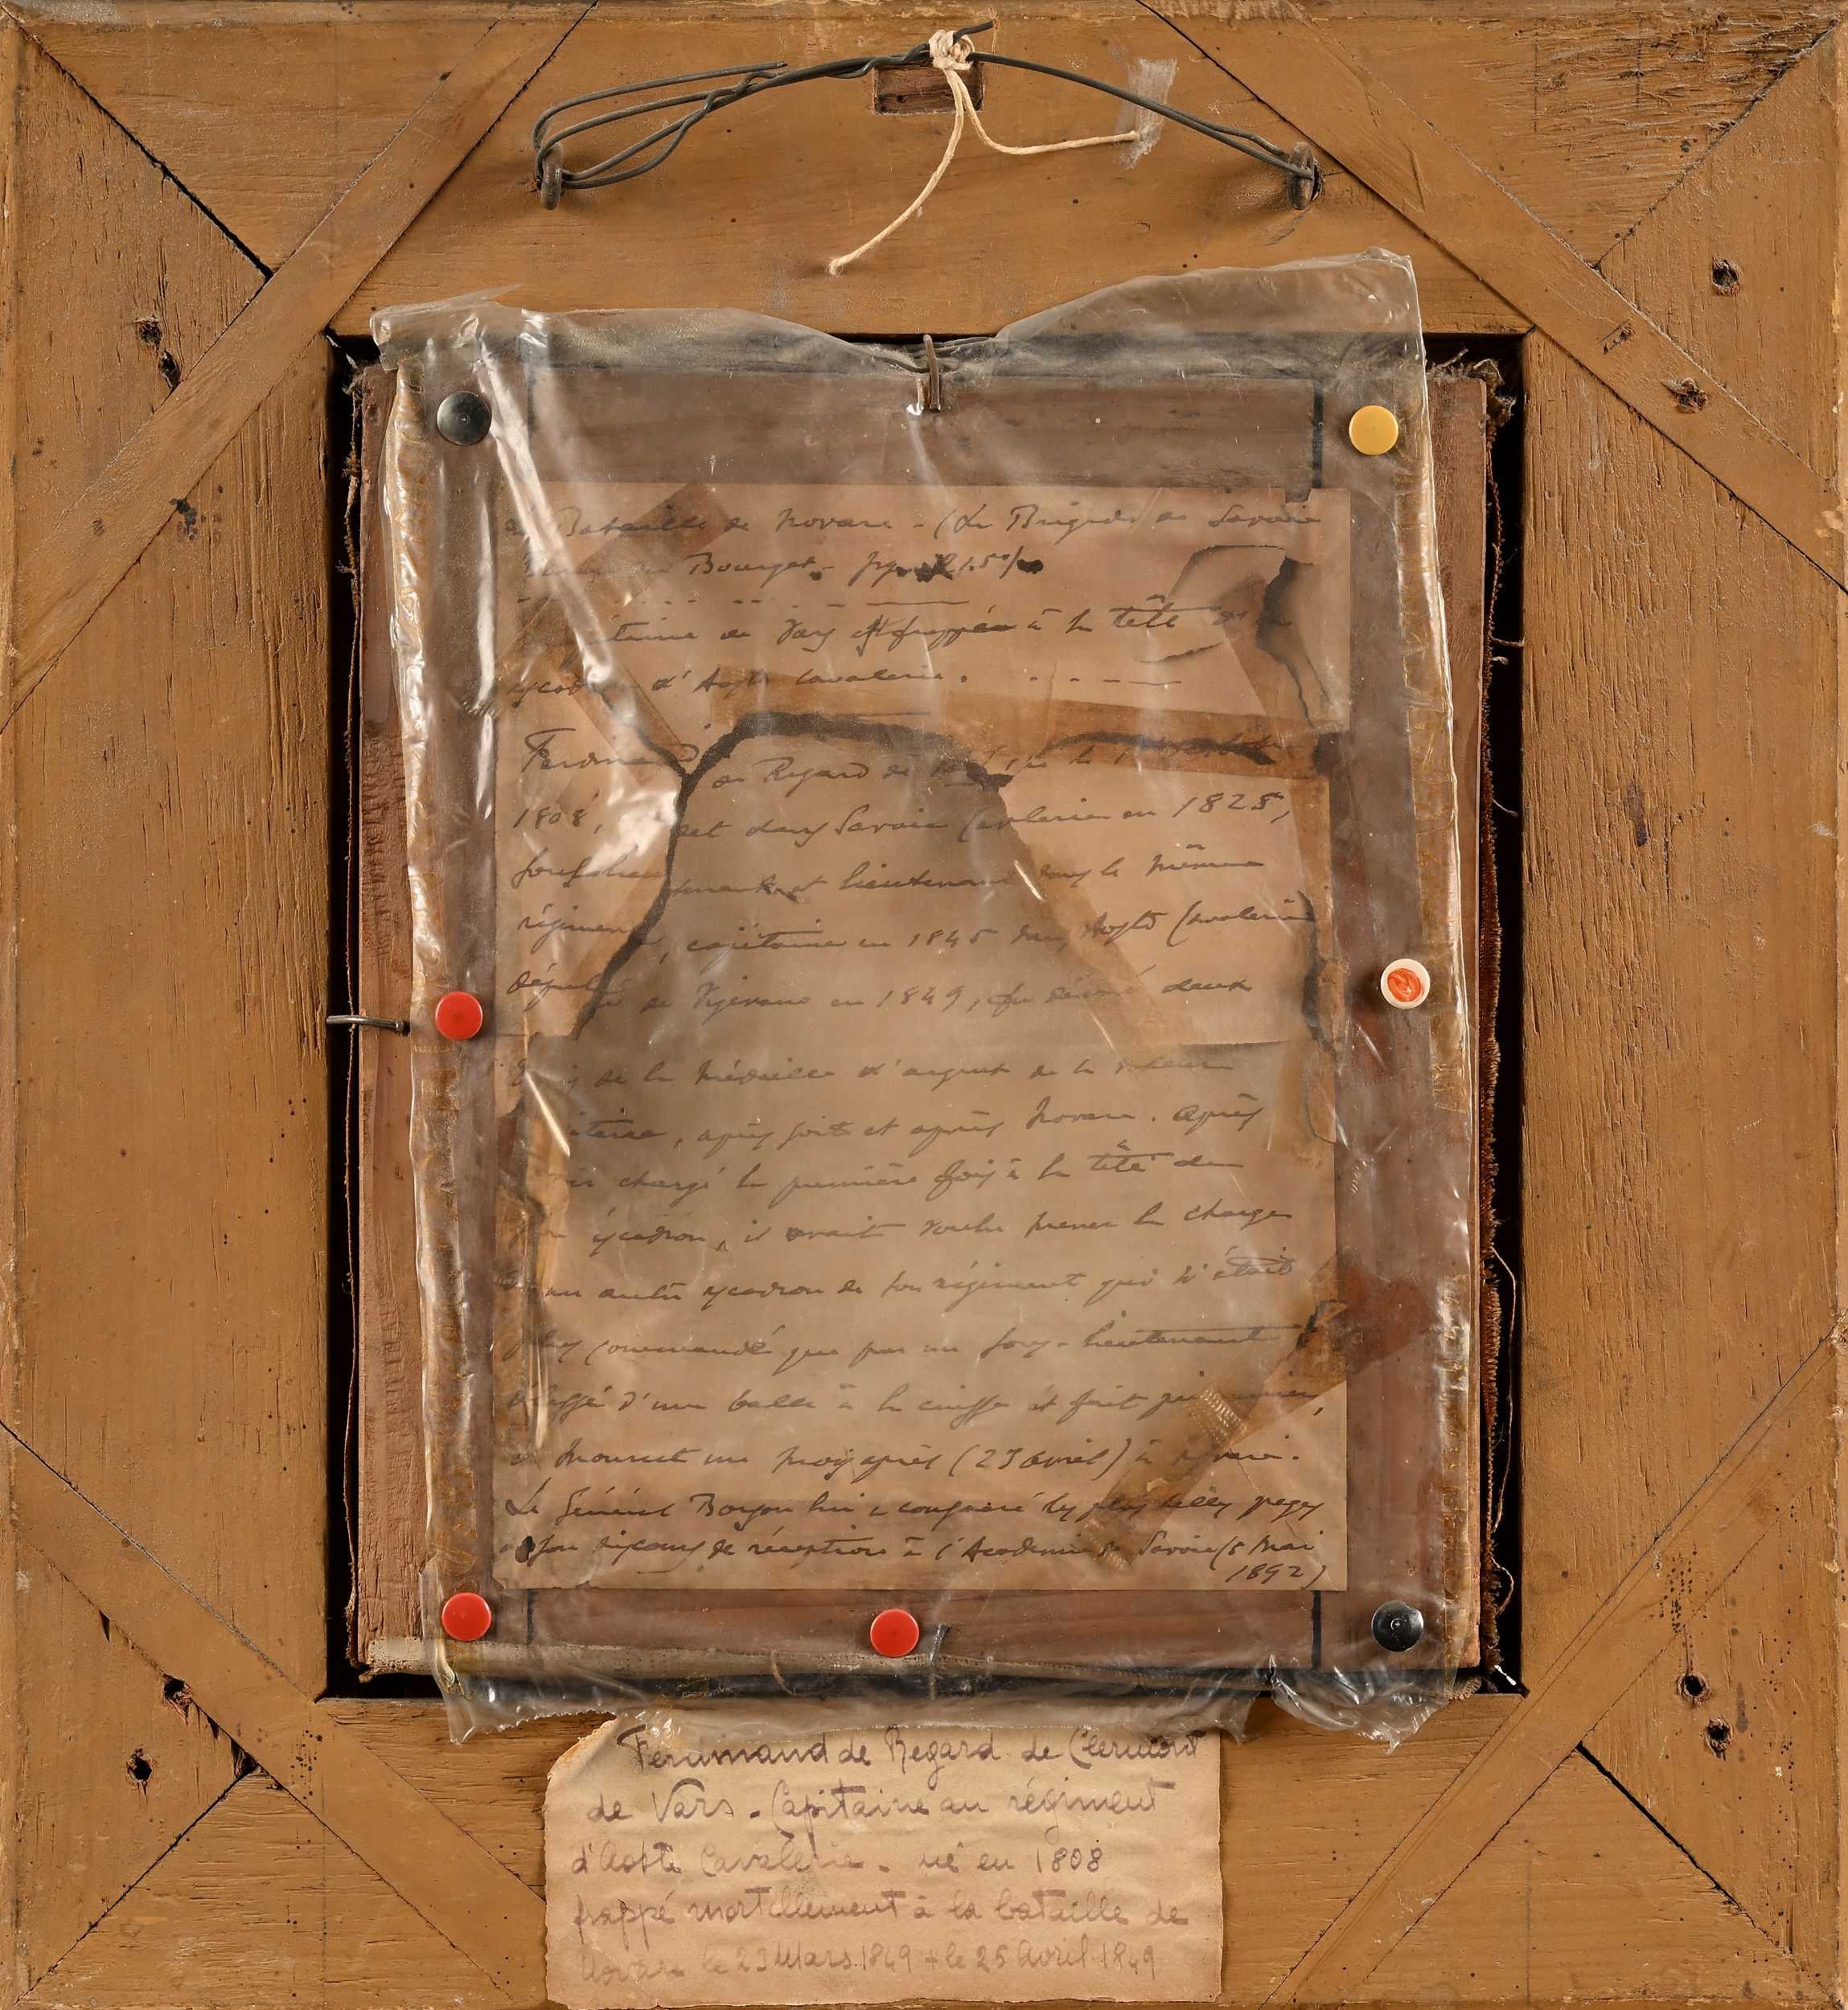 Bataille de Novare - (La Brigade de Savoie
Bourget - page
de Vars est frappée à la tête
d'Aoste Cavalerie.
Ferdinand de Regard de
1808, dans Savoie Cavalerie en 1828,
sous-lieutenant et lieutenant dans le même
régiment, capitaine en 1845 dans Aoste Cavalerie
député de Vigevano en 1849, fu décoré deux
de la médaille d'argent de la valeur
après Goito et après Novare. Après
chargé la première fois à la tête de
escadron, il avait voulu mener la charge
un autre escadron de son régiment qui n'était
plus commandé que par un sous-lieutenant
blessé d'une balle à la cuisse et fait prisonnier,
mourut un mois après (23 avril) à
Le Général Borson lui a consacré les plus belles pages
son discours de réception à l'Academie de Savoie (5 Mai
1892)
Ferdinand de Regard de Clermont
de Vars - Capitaine au régiment
d'Aoste Cavalerie - né en 1808
frappé mortellement à la bataille de
Novare le 23 Mars 1849 + le 25 Avril 1849